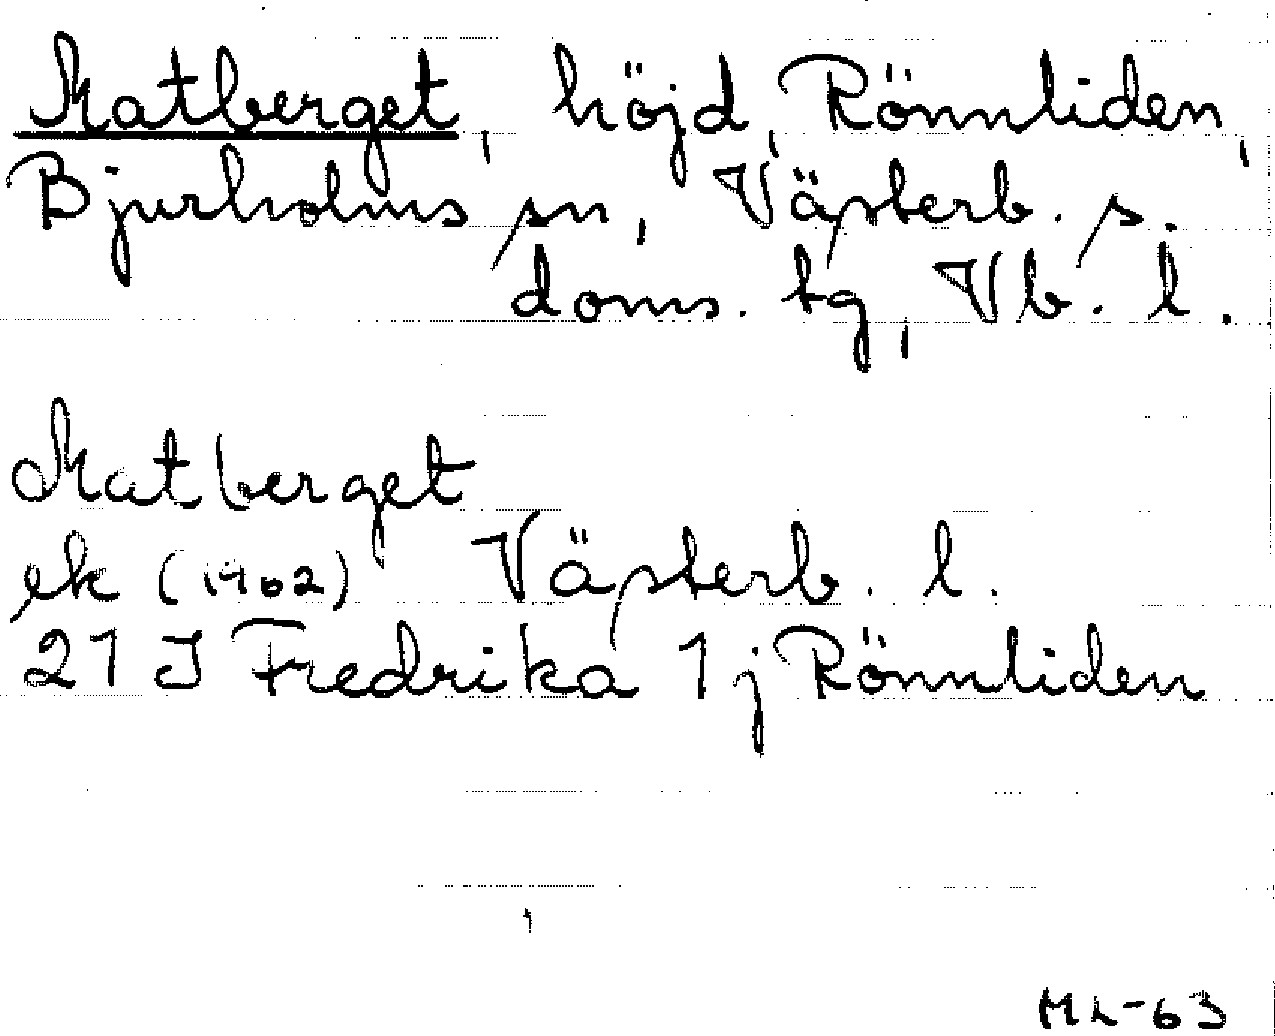 Matberget, höjd, Rönnliden,
Bjurholms sn, Västerb. s.
doms. tg, Vb. l.
Matberget
ek (1962) Västerb. l.
21 J Fredrika 1 j Rönnliden
ML-63